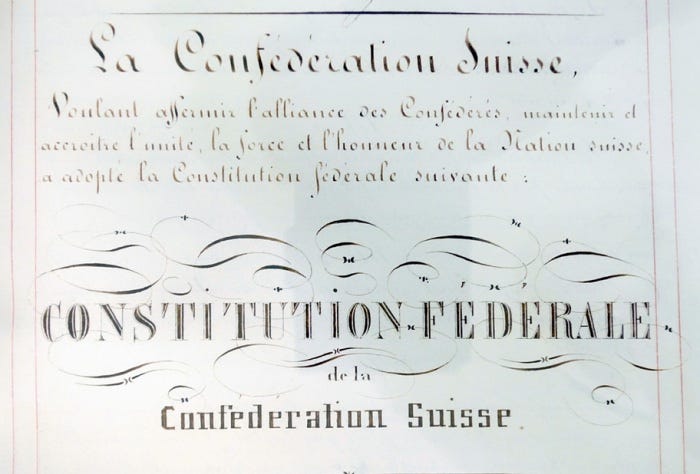 La Confédération Suisse,
Voulant affermir l'alliance des Confédérés, maintenir et
accroître l'unité, la force et l'honneur de la Nation suisse,
a adopté la Constitution fédérale suivante :
CONSTITUTION FÉDÉRALE
de la
Confédération Suisse.